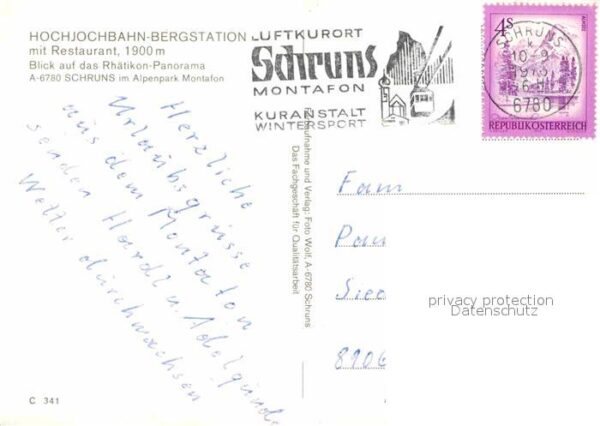 HOCHJOCHBAHN-BERGSTATION
mit Restaurant, 1900 m
Blick auf das Rhätikon-Panorama
A-6780 SCHRUNS im Alpenpark Montafon
LUFTKURORT
Schruns
MONTAFON
KURANSTALT
WINTERSPORT
4S
REPUBLIK ÖSTERREICH
SCHRUNS
10.-9.
6780
Herzliche
Urlaubsgrüsse
aus dem Montafon
senden Hardl u. Adelgunde
Wetter durchwachsen
Aufnahme und Verlag: Foto Wolf, A-6780 Schruns
Das Fachgeschäft für Qualitätsarbeit
Fam
Pau
8906
privacy protection
Datenschutz
C 341